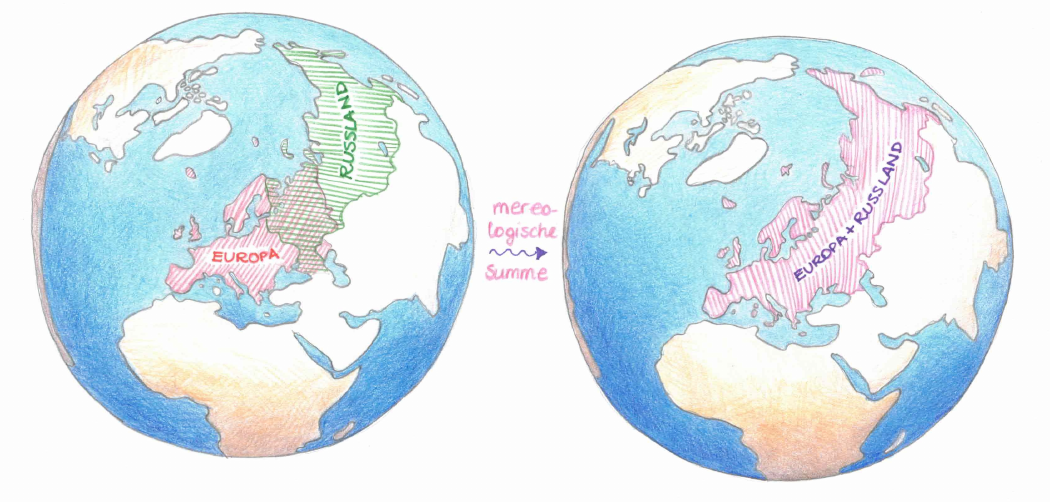 RUSSLAND
EUROPA
mereo-
logische
Summe
EUROPA + RUSSLAND